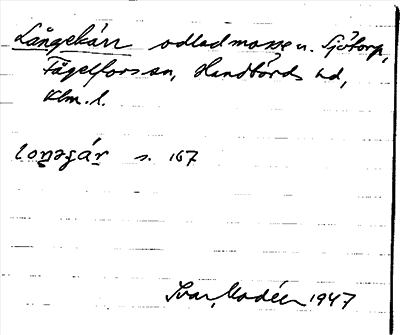 Långekärr odlad mosse u. Sjötorp,
Fågelfors sn, Handbörds hd,
Klm. l.
loŋəɟár s. 167
Ivar Modéer 1947